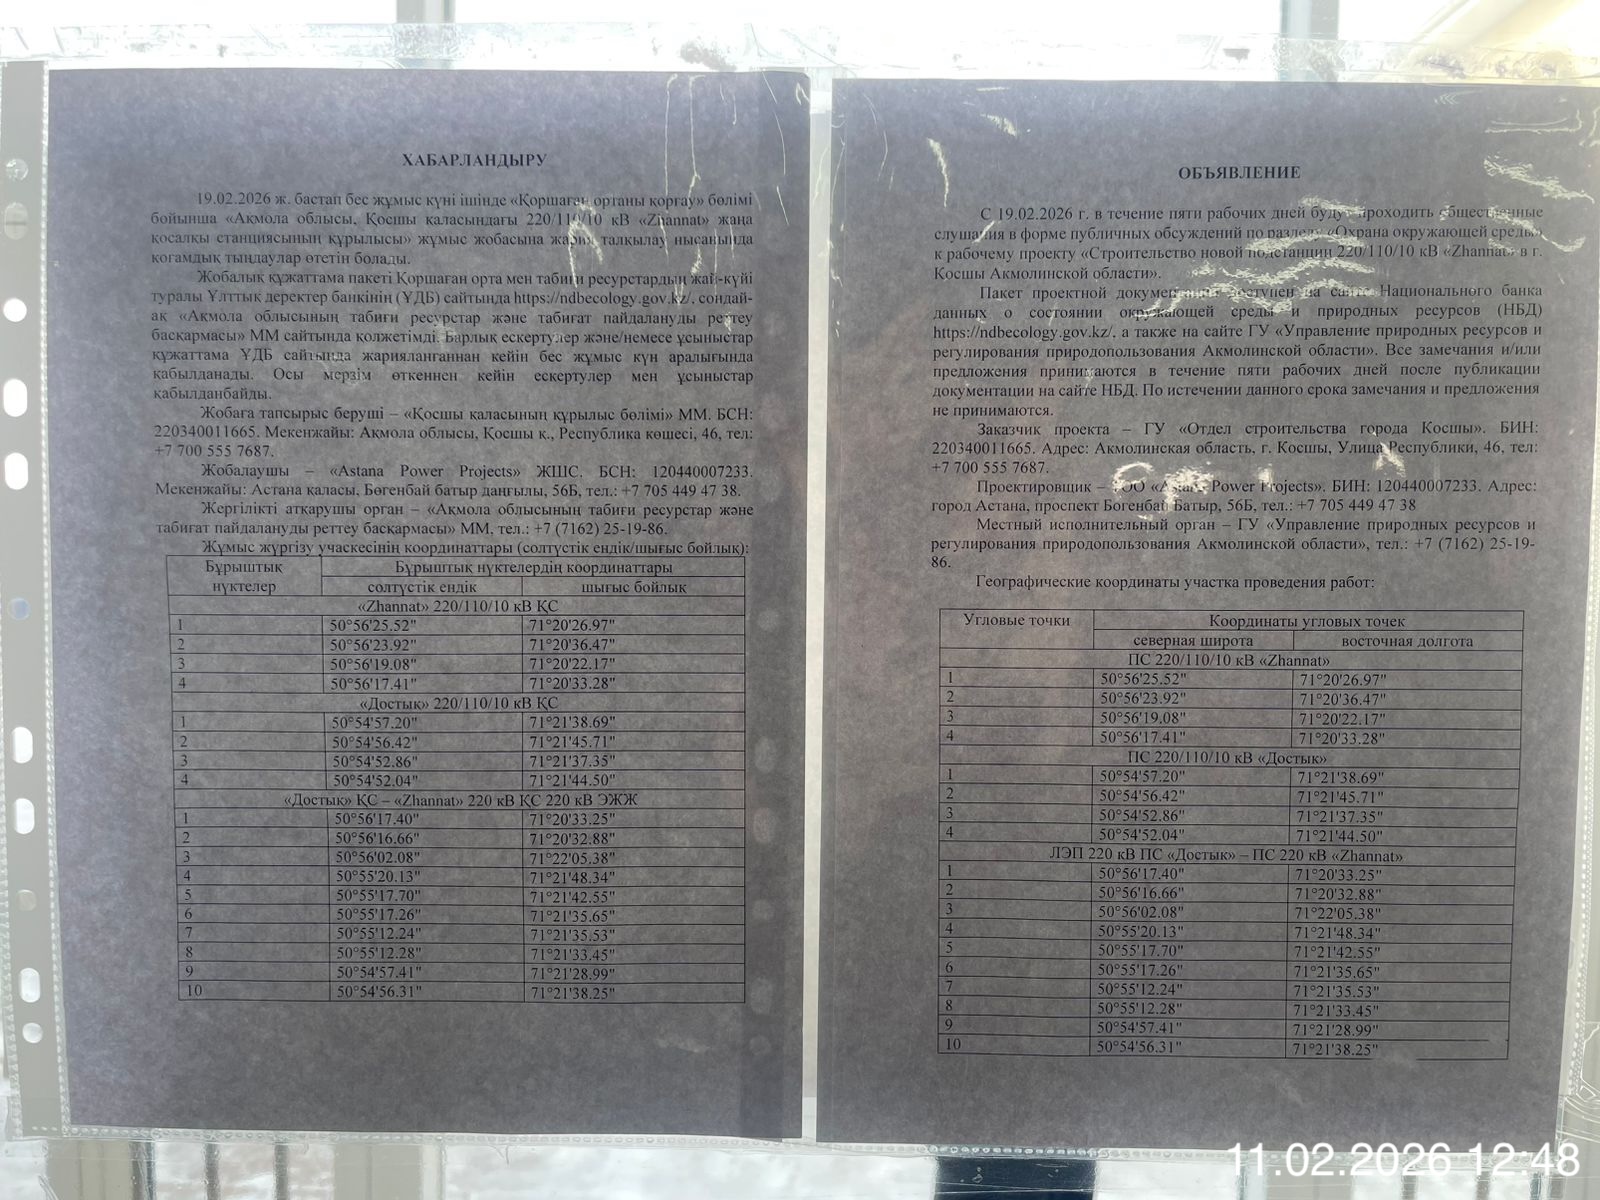 ХАБАРЛАНДЫРУ
19.02.2026 ж. бастап бес жұмыс күні ішінде «Қоршаған ортаны қорғау» бөлімі
бойынша «Ақмола облысы, Қосшы қаласындағы 220/110/10 кВ «Zhannat» жаңа
қосалқы станциясының құрылысы» жұмыс жобасына жария талқылау нысанында
қоғамдық тыңдаулар өтетін болады.
Жобалық құжаттама пакеті Қоршаған орта мен табиғи ресурстардың жай-күйі
туралы Ұлттық деректер банкінің (ҰДБ) сайтында https://ndbecology.gov.kz/, сондай-
ақ «Ақмола облысының табиғи ресурстар және табиғат пайдалануды реттеу
басқармасы» ММ сайтында қолжетімді. Барлық ескертулер және/немесе ұсыныстар
құжаттама ҰДБ сайтында жарияланғаннан кейін бес жұмыс күн аралығында
қабылданады. Осы мерзім өткеннен кейін ескертулер мен ұсыныстар
қабылданбайды.
Жобаға тапсырыс беруші – «Қосшы қаласының құрылыс бөлімі» ММ. БСН:
220340011665. Мекенжайы: Ақмола облысы, Қосшы қ., Республика көшесі, 46, тел:
+7 700 555 7687.
Жобалаушы – «Astana Power Projects» ЖШС. БСН: 120440007233.
Мекенжайы: Астана қаласы, Бөгенбай батыр даңғылы, 56Б, тел.: +7 705 449 47 38.
Жергілікті атқарушы орган – «Ақмола облысының табиғи ресурстар және
табиғат пайдалануды реттеу басқармасы» ММ, тел.: +7 (7162) 25-19-86.
Жұмыс жүргізу учаскесінің координаттары (солтүстік ендік/шығыс бойлық):
Бұрыштық нүктелер Бұрыштық нүктелердің координаттары
солтүстік ендік шығыс бойлық
«Zhannat» 220/110/10 кВ ҚС
1 50°56'25.52" 71°20'26.97"
2 50°56'23.92" 71°20'36.47"
3 50°56'19.08" 71°20'22.17"
4 50°56'17.41" 71°20'33.28"
«Достык» 220/110/10 кВ ҚС
1 50°54'57.20" 71°21'38.69"
2 50°54'56.42" 71°21'45.71"
3 50°54'52.86" 71°21'37.35"
4 50°54'52.04" 71°21'44.50"
«Достык» ҚС – «Zhannat» 220 кВ ҚС 220 кВ ЭЖЖ
1 50°56'17.40" 71°20'33.25"
2 50°56'16.66" 71°20'32.88"
3 50°56'02.08" 71°22'05.38"
4 50°55'20.13" 71°21'48.34"
5 50°55'17.70" 71°21'42.55"
6 50°55'17.26" 71°21'35.65"
7 50°55'12.24" 71°21'35.53"
8 50°55'12.28" 71°21'33.45"
9 50°54'57.41" 71°21'28.99"
10 50°54'56.31" 71°21'38.25"
ОБЪЯВЛЕНИЕ
С 19.02.2026 г. в течение пяти рабочих дней будут проходить общественные
слушания в форме публичных обсуждений по разделу «Охрана окружающей среды»
к рабочему проекту «Строительство новой подстанции 220/110/10 кВ «Zhannat» в г.
Косшы Акмолинской области».
Пакет проектной документации доступен на сайте Национального банка
данных о состоянии окружающей среды и природных ресурсов (НБД)
https://ndbecology.gov.kz/, а также на сайте ГУ «Управление природных ресурсов и
регулирования природопользования Акмолинской области». Все замечания и/или
предложения принимаются в течение пяти рабочих дней после публикации
документации на сайте НБД. По истечении данного срока замечания и предложения
не принимаются.
Заказчик проекта – ГУ «Отдел строительства города Косшы». БИН:
220340011665. Адрес: Акмолинская область, г. Косшы, Улица Республики, 46, тел:
+7 700 555 7687.
Проектировщик – ТОО «Astana Power Projects». БИН: 120440007233. Адрес:
город Астана, проспект Богенбай Батыр, 56Б, тел.: +7 705 449 47 38
Местный исполнительный орган – ГУ «Управление природных ресурсов и
регулирования природопользования Акмолинской области», тел.: +7 (7162) 25-19-
86.
Географические координаты участка проведения работ:
Угловые точки Координаты угловых точек
северная широта восточная долгота
ПС 220/110/10 кВ «Zhannat»
1 50°56'25.52" 71°20'26.97"
2 50°56'23.92" 71°20'36.47"
3 50°56'19.08" 71°20'22.17"
4 50°56'17.41" 71°20'33.28"
ПС 220/110/10 кВ «Достык»
1 50°54'57.20" 71°21'38.69"
2 50°54'56.42" 71°21'45.71"
3 50°54'52.86" 71°21'37.35"
4 50°54'52.04" 71°21'44.50"
ЛЭП 220 кВ ПС «Достык» – ПС 220 кВ «Zhannat»
1 50°56'17.40" 71°20'33.25"
2 50°56'16.66" 71°20'32.88"
3 50°56'02.08" 71°22'05.38"
4 50°55'20.13" 71°21'48.34"
5 50°55'17.70" 71°21'42.55"
6 50°55'17.26" 71°21'35.65"
7 50°55'12.24" 71°21'35.53"
8 50°55'12.28" 71°21'33.45"
9 50°54'57.41" 71°21'28.99"
10 50°54'56.31" 71°21'38.25"
11.02.2026 12:48